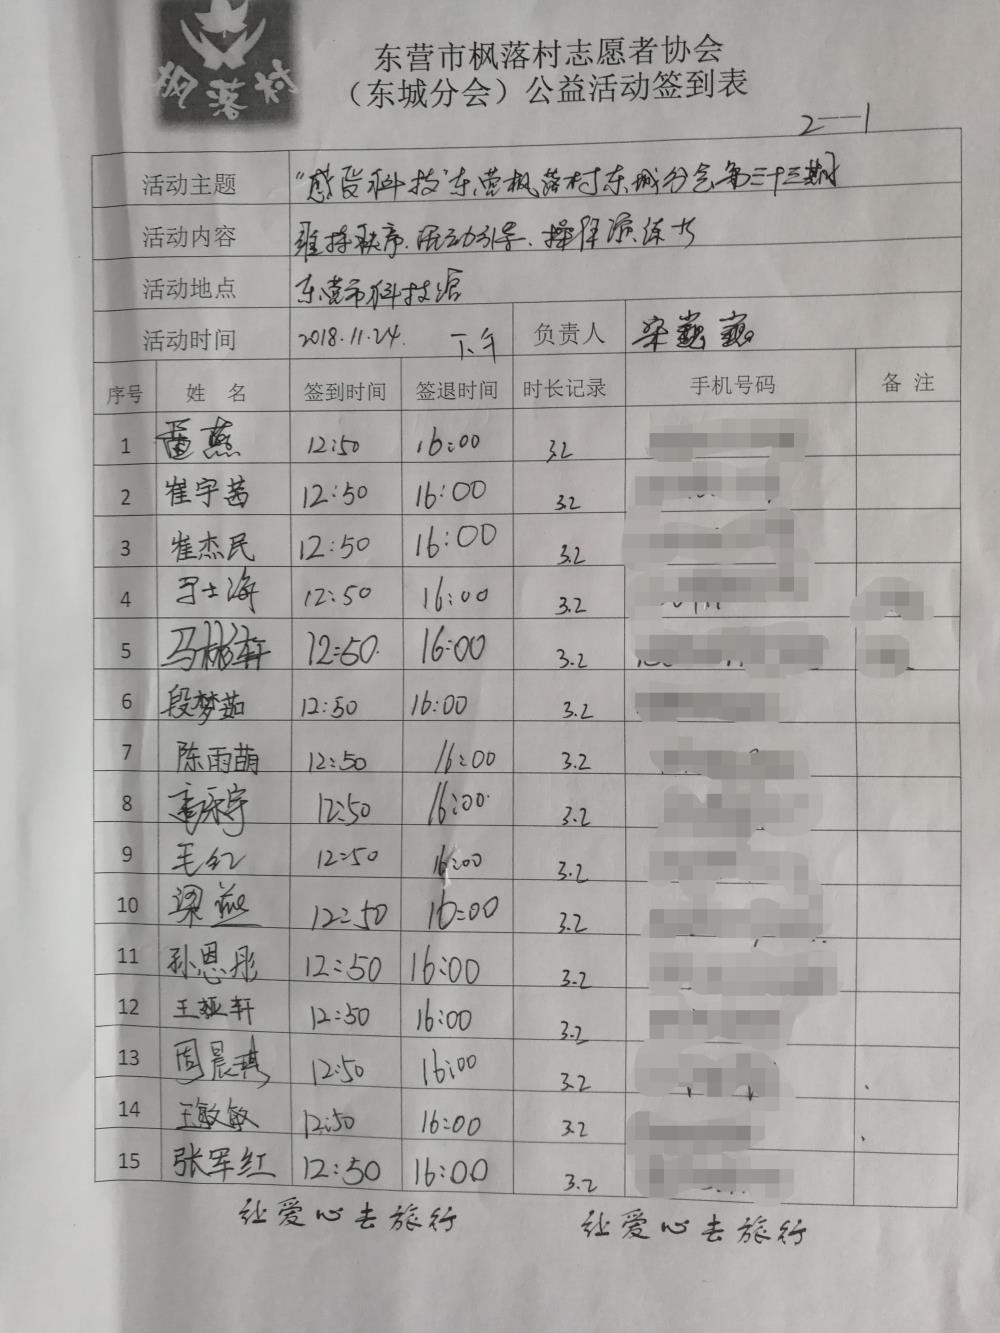 枫落村
东营市枫落村志愿者协会
（东城分会）公益活动签到表
2—1
活动主题 “感受科技”东营枫落村东城分会第三十三期
活动内容 维持秩序、活动引导、操作演练等
活动地点 东营市科技馆
活动时间 2018.11.24. 下午 负责人 梁巍巍
序号 姓 名 签到时间 签退时间 时长记录 手机号码 备 注
1 燕 12:50 16:00 3.2
2 崔宇茜 12:50 16:00 3.2
3 崔杰民 12:50 16:00 3.2
4 于士海 12:50 16:00 3.2
5 马彬轩 12:50 16:00 3.2
6 段梦茹 12:50 16:00 3.2
7 陈雨萌 12:50 16:00 3.2
8 12:50 16:00 3.2
9 毛红 12:50 16:00 3.2
10 梁燕 12:50 16:00 3.2
11 孙恩彤 12:50 16:00 3.2
12 王娅轩 12:50 16:00 3.2
13 周晨琪 12:50 16:00 3.2
14 王敏敏 12:50 16:00 3.2
15 张军红 12:50 16:00 3.2
让爱心去旅行 让爱心去旅行